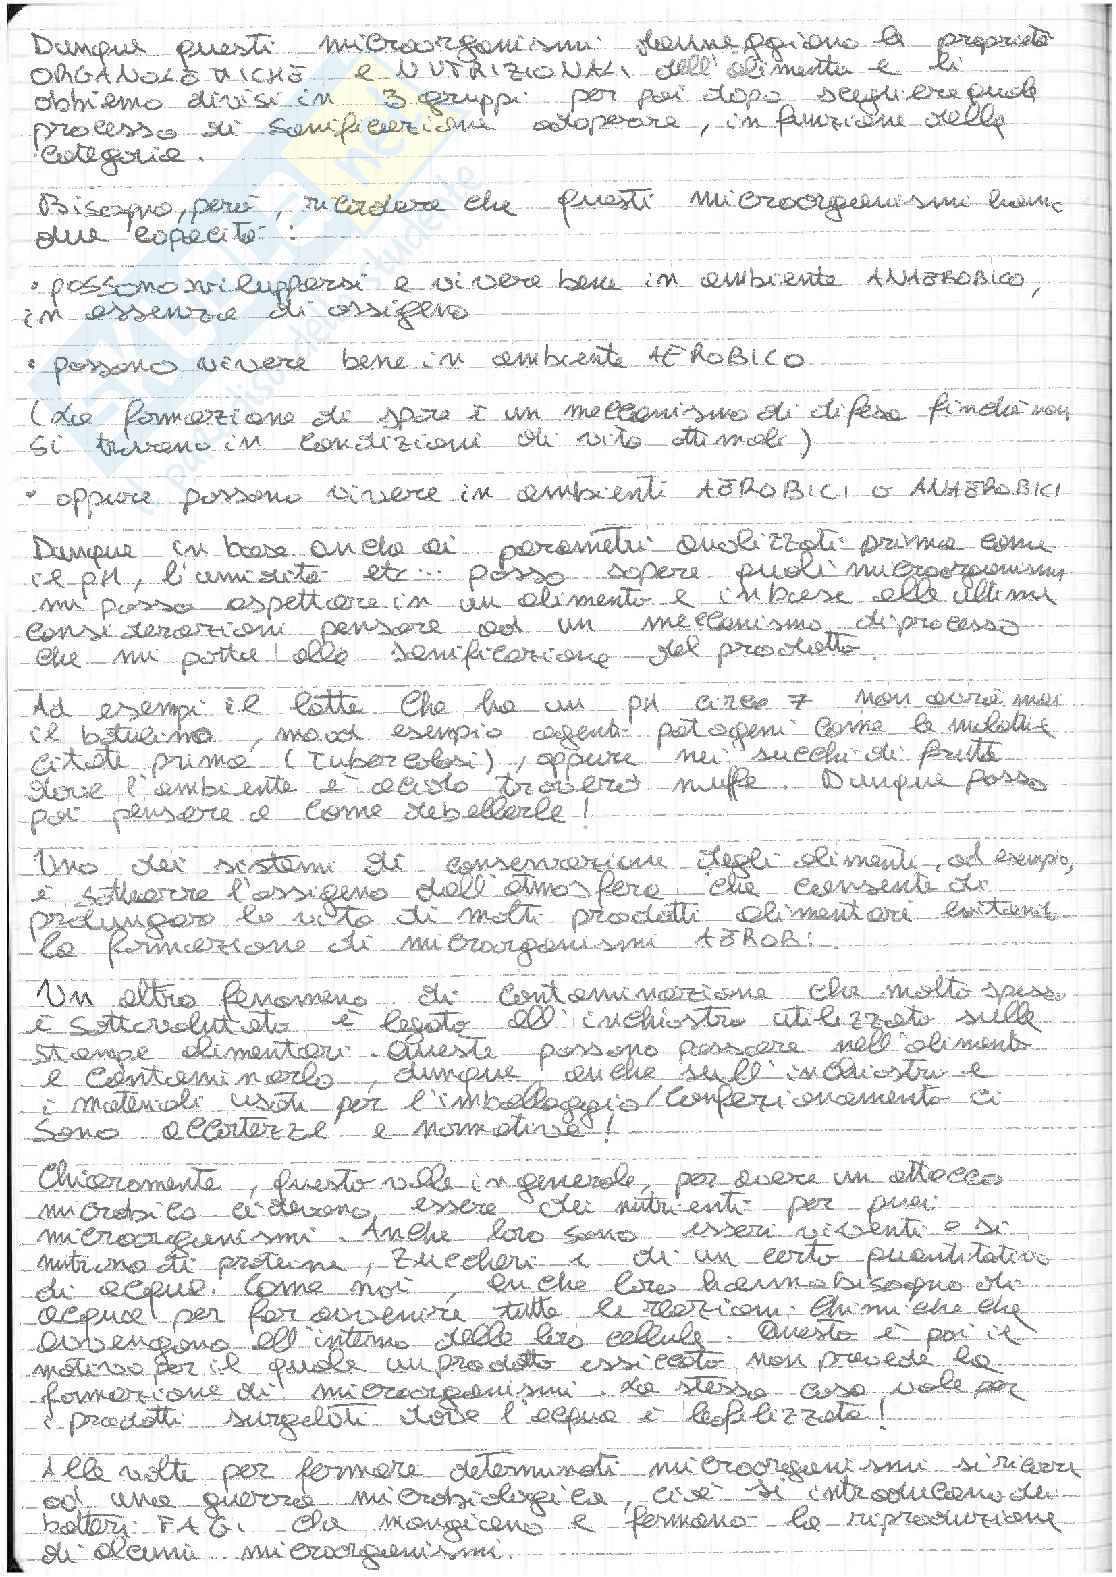 Dunque questi microorganismi danneggiano le proprietà
ORGANOLETTICHE e NUTRIZIONALI dell'alimento e li
abbiamo divisi in 3 gruppi per poi dopo scegliere quale
processo di sanificazione adoperare, in funzione della
categoria.
Bisogna, però, ricordare che questi microorganismi hanno
due capacità:
• possono svilupparsi e vivere bene in ambiente ANAEROBICO,
in assenza di ossigeno
• possono vivere bene in ambiente AEROBICO
(La formazione di spore è un meccanismo di difesa finché non
si trovano in condizioni di vita ottimali)
• oppure possono vivere in ambienti AEROBICI o ANAEROBICI
Dunque in base anche ai parametri analizzati prima come
il pH, l'umidità etc... posso sapere quali microorganismi
mi posso aspettare in un alimento e in base alle ultime
considerazioni pensare ad un meccanismo di processo
che mi porta alla sanificazione del prodotto.
Ad esempi il latte che ha un pH circa 7 non avrà mai
il botulino, ma ad esempio agenti patogeni come le malattie
citate prima (Tubercolosi), oppure nei succhi di frutta
dove l'ambiente è acido troverò muffe. Dunque posso
poi pensare a come debellarle!
Uno dei sistemi di conservazione degli alimenti, ad esempio,
è sottrarre l'ossigeno dall'atmosfera che consente di
prolungare la vita di molti prodotti alimentari evitando
la formazione di microorganismi AEROBI.
Un altro fenomeno di contaminazione che molto spesso
è sottovalutato è legato all'inchiostro utilizzato sulle
stampe alimentari. Queste possono passare nell'alimento
e contaminarlo, dunque, anche sull'inchiostri e
i materiali usati per l'imballaggio/confezionamento ci
sono accortezze e normative!
Chiaramente, questo vale in generale, per avere un attacco
microbico ci devono essere dei nutrienti per quei
microorganismi. Anche loro sono esseri viventi e si
nutrono di proteine, zuccheri e di un certo quantitativo
di acqua. Come noi, anche loro hanno bisogno di
acqua per far avvenire tutte le reazioni chimiche che
avvengono all'interno delle loro cellule. Questo è poi il
motivo per il quale un prodotto essiccato non prevede la
formazione di microorganismi. La stessa cosa vale per
i prodotti surgelati dove l'acqua è liofilizzata!
Alle volte per fermare determinati microorganismi si ricorre
ad una guerra microbiologica, cioè si introducono dei
batteri FAGI che mangiano e fermano la riproduzione
di alcuni microorganismi.